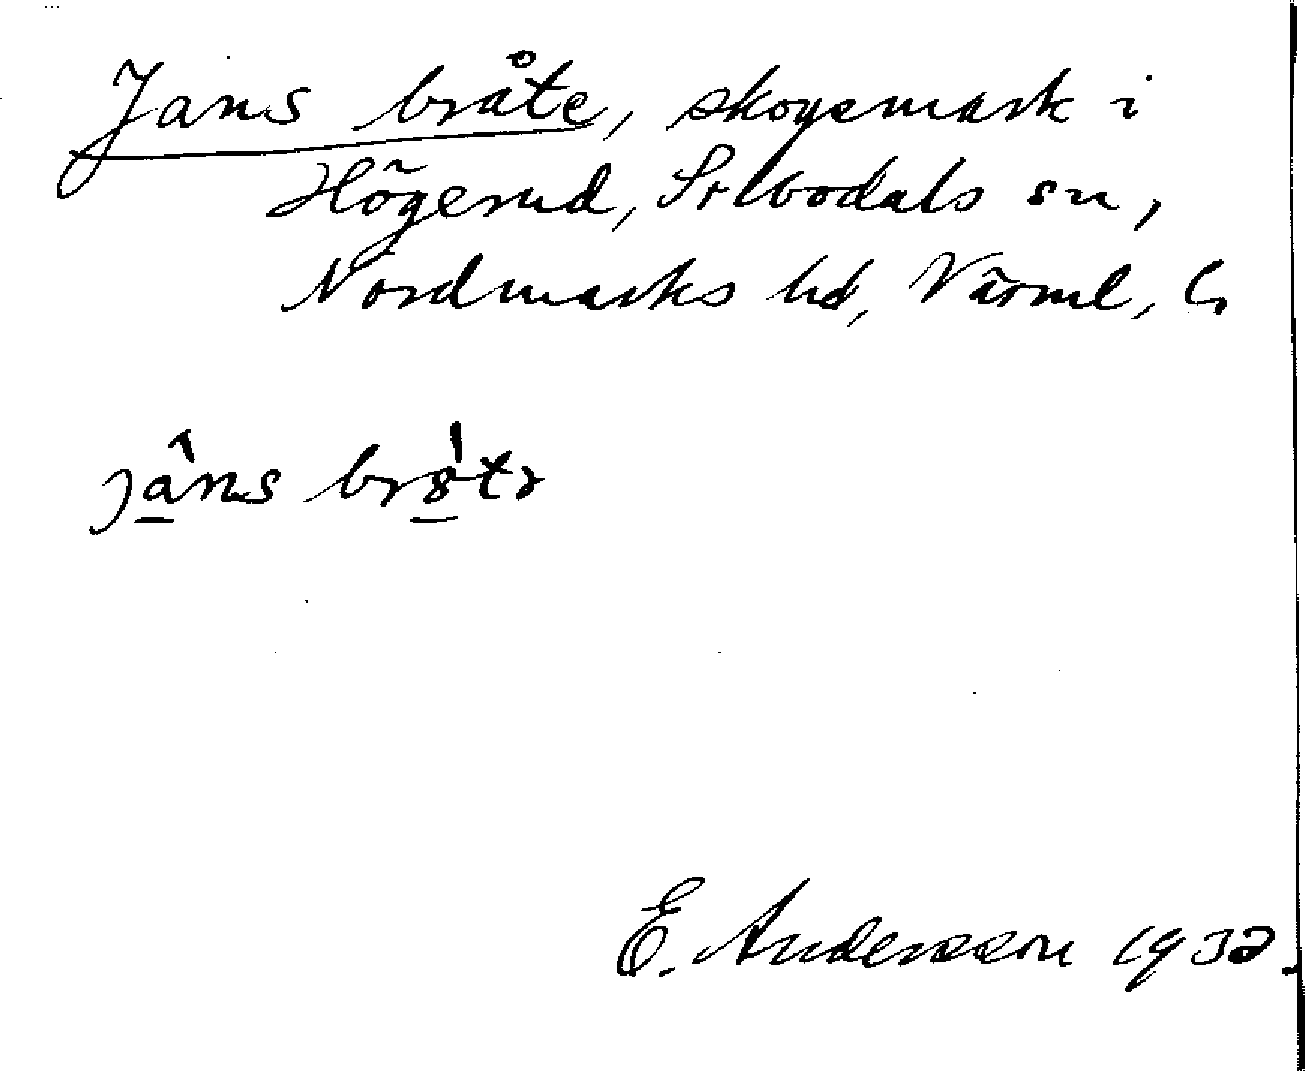 Jans bråte, skogsmark i
Högerud, Silbodals sn,
Nordmarks hd, Värml. l.
jans bråtə
E. Andersson 1932.